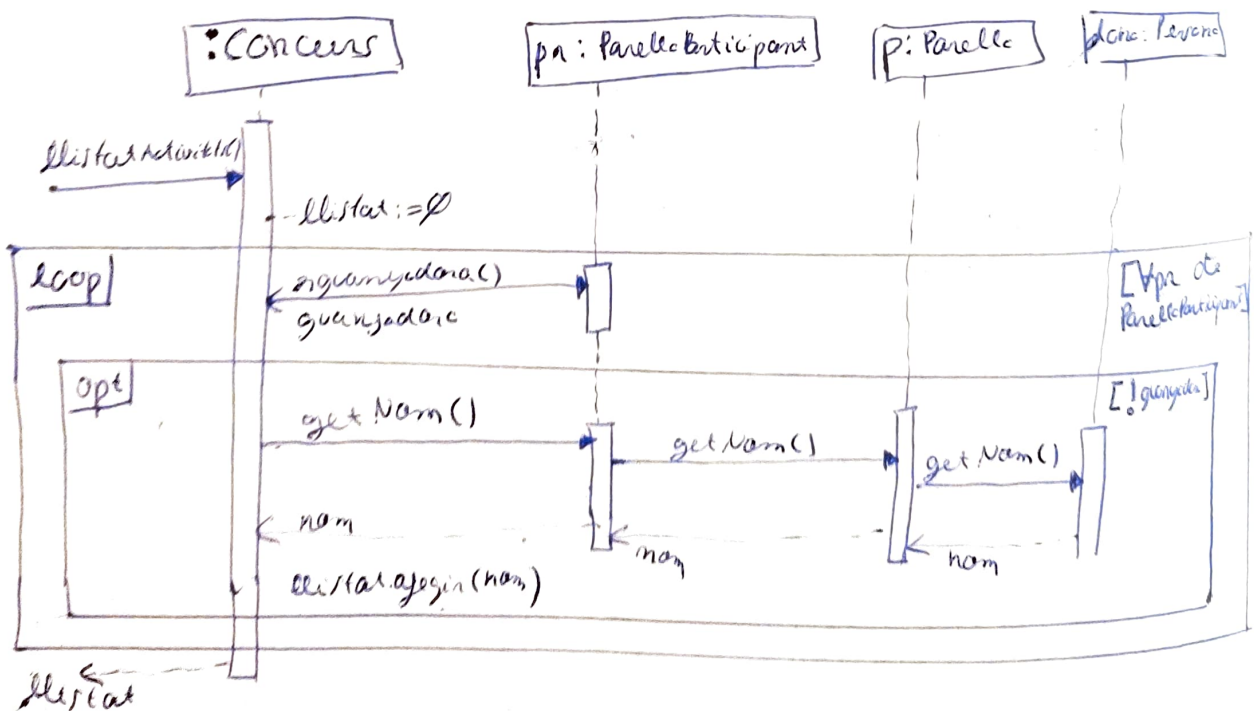 :Concurs
pn: ParellaParticipant
p: Parella
dona: Persona
llistat:=∅
loop
guanyadora
[∀pn
ParellaParticipant]
opt
[!guanyadora]
getNom()
getNom()
getNom()
nom
nom
nom
llistat.afegir(nom)
llistat